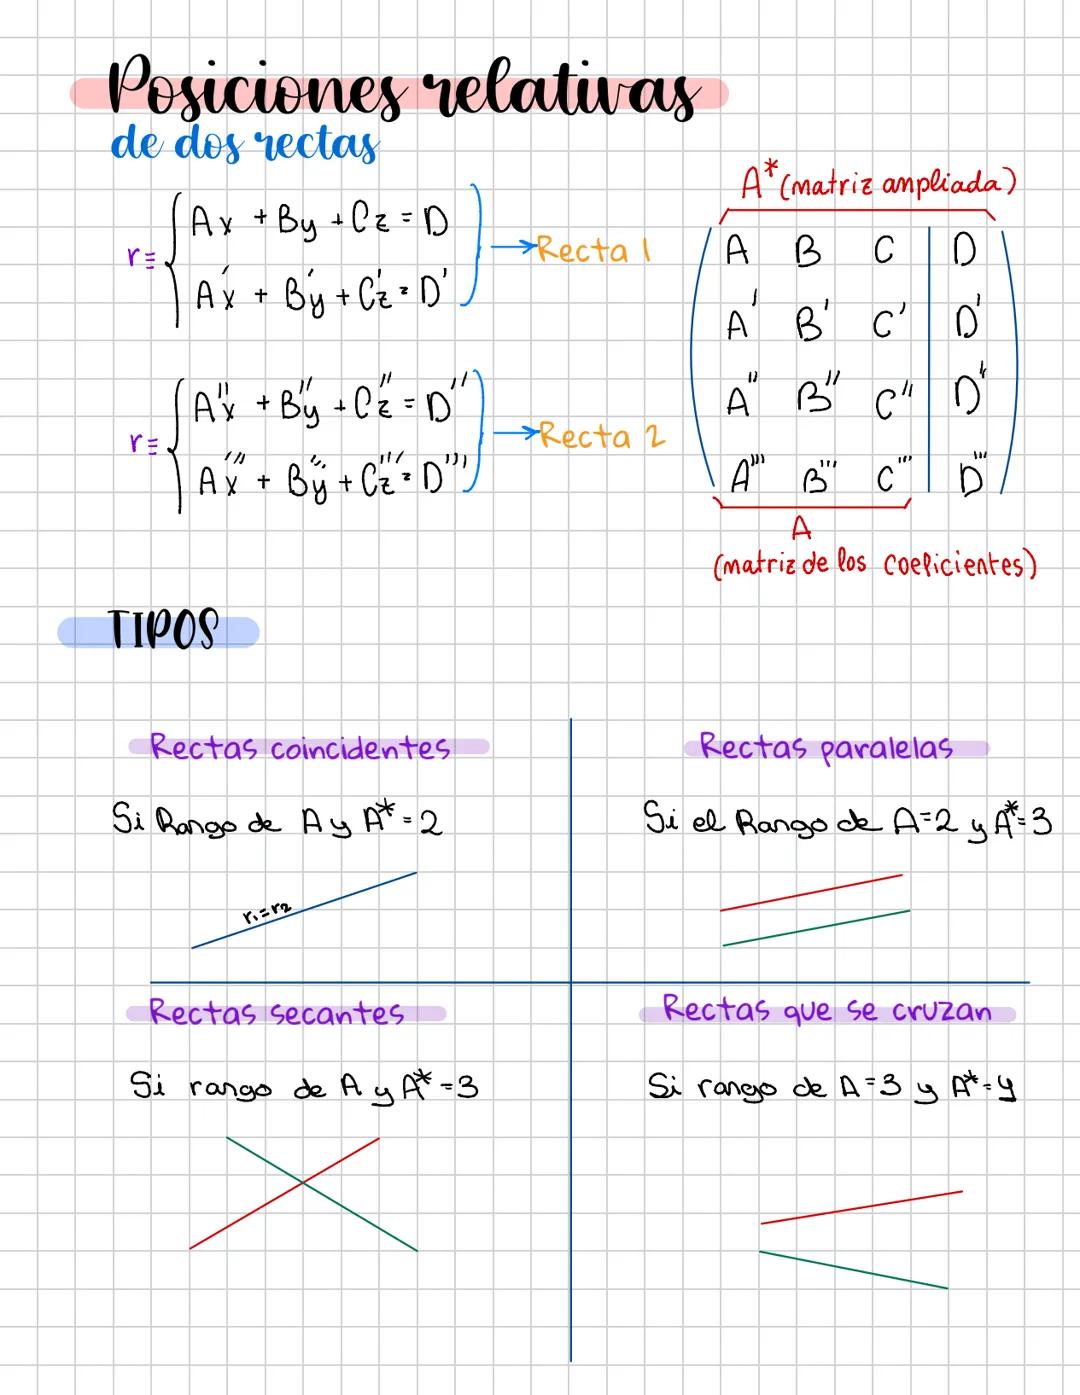 Posiciones relativas
de dos rectas
r≡ { Ax + By + Cz = D
A'x + B'y + C'z = D'
→ Recta 1
r≡ { A''x + B''y + C''z = D''
A'''x + B'''y + C'''z = D'''
→ Recta 2
A* (matriz ampliada)
A B C | D
A' B' C' | D'
A'' B'' C'' | D''
A''' B''' C''' | D'''
A
(matriz de los coeficientes)
TIPOS
Rectas coincidentes
Si Rango de A y A* = 2
r₁=r₂
Rectas paralelas
Si el Rango de A=2 y A*=3
Rectas secantes
Si rango de A y A* = 3
Rectas que se cruzan
Si rango de A=3 y A*=4